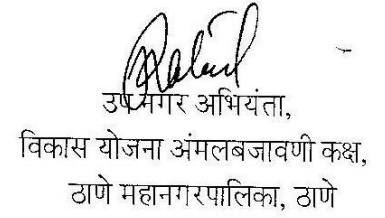 उप नगर अभियंता,
विकास योजना अंमलबजावणी कक्ष,
ठाणे महानगरपालिका, ठाणे